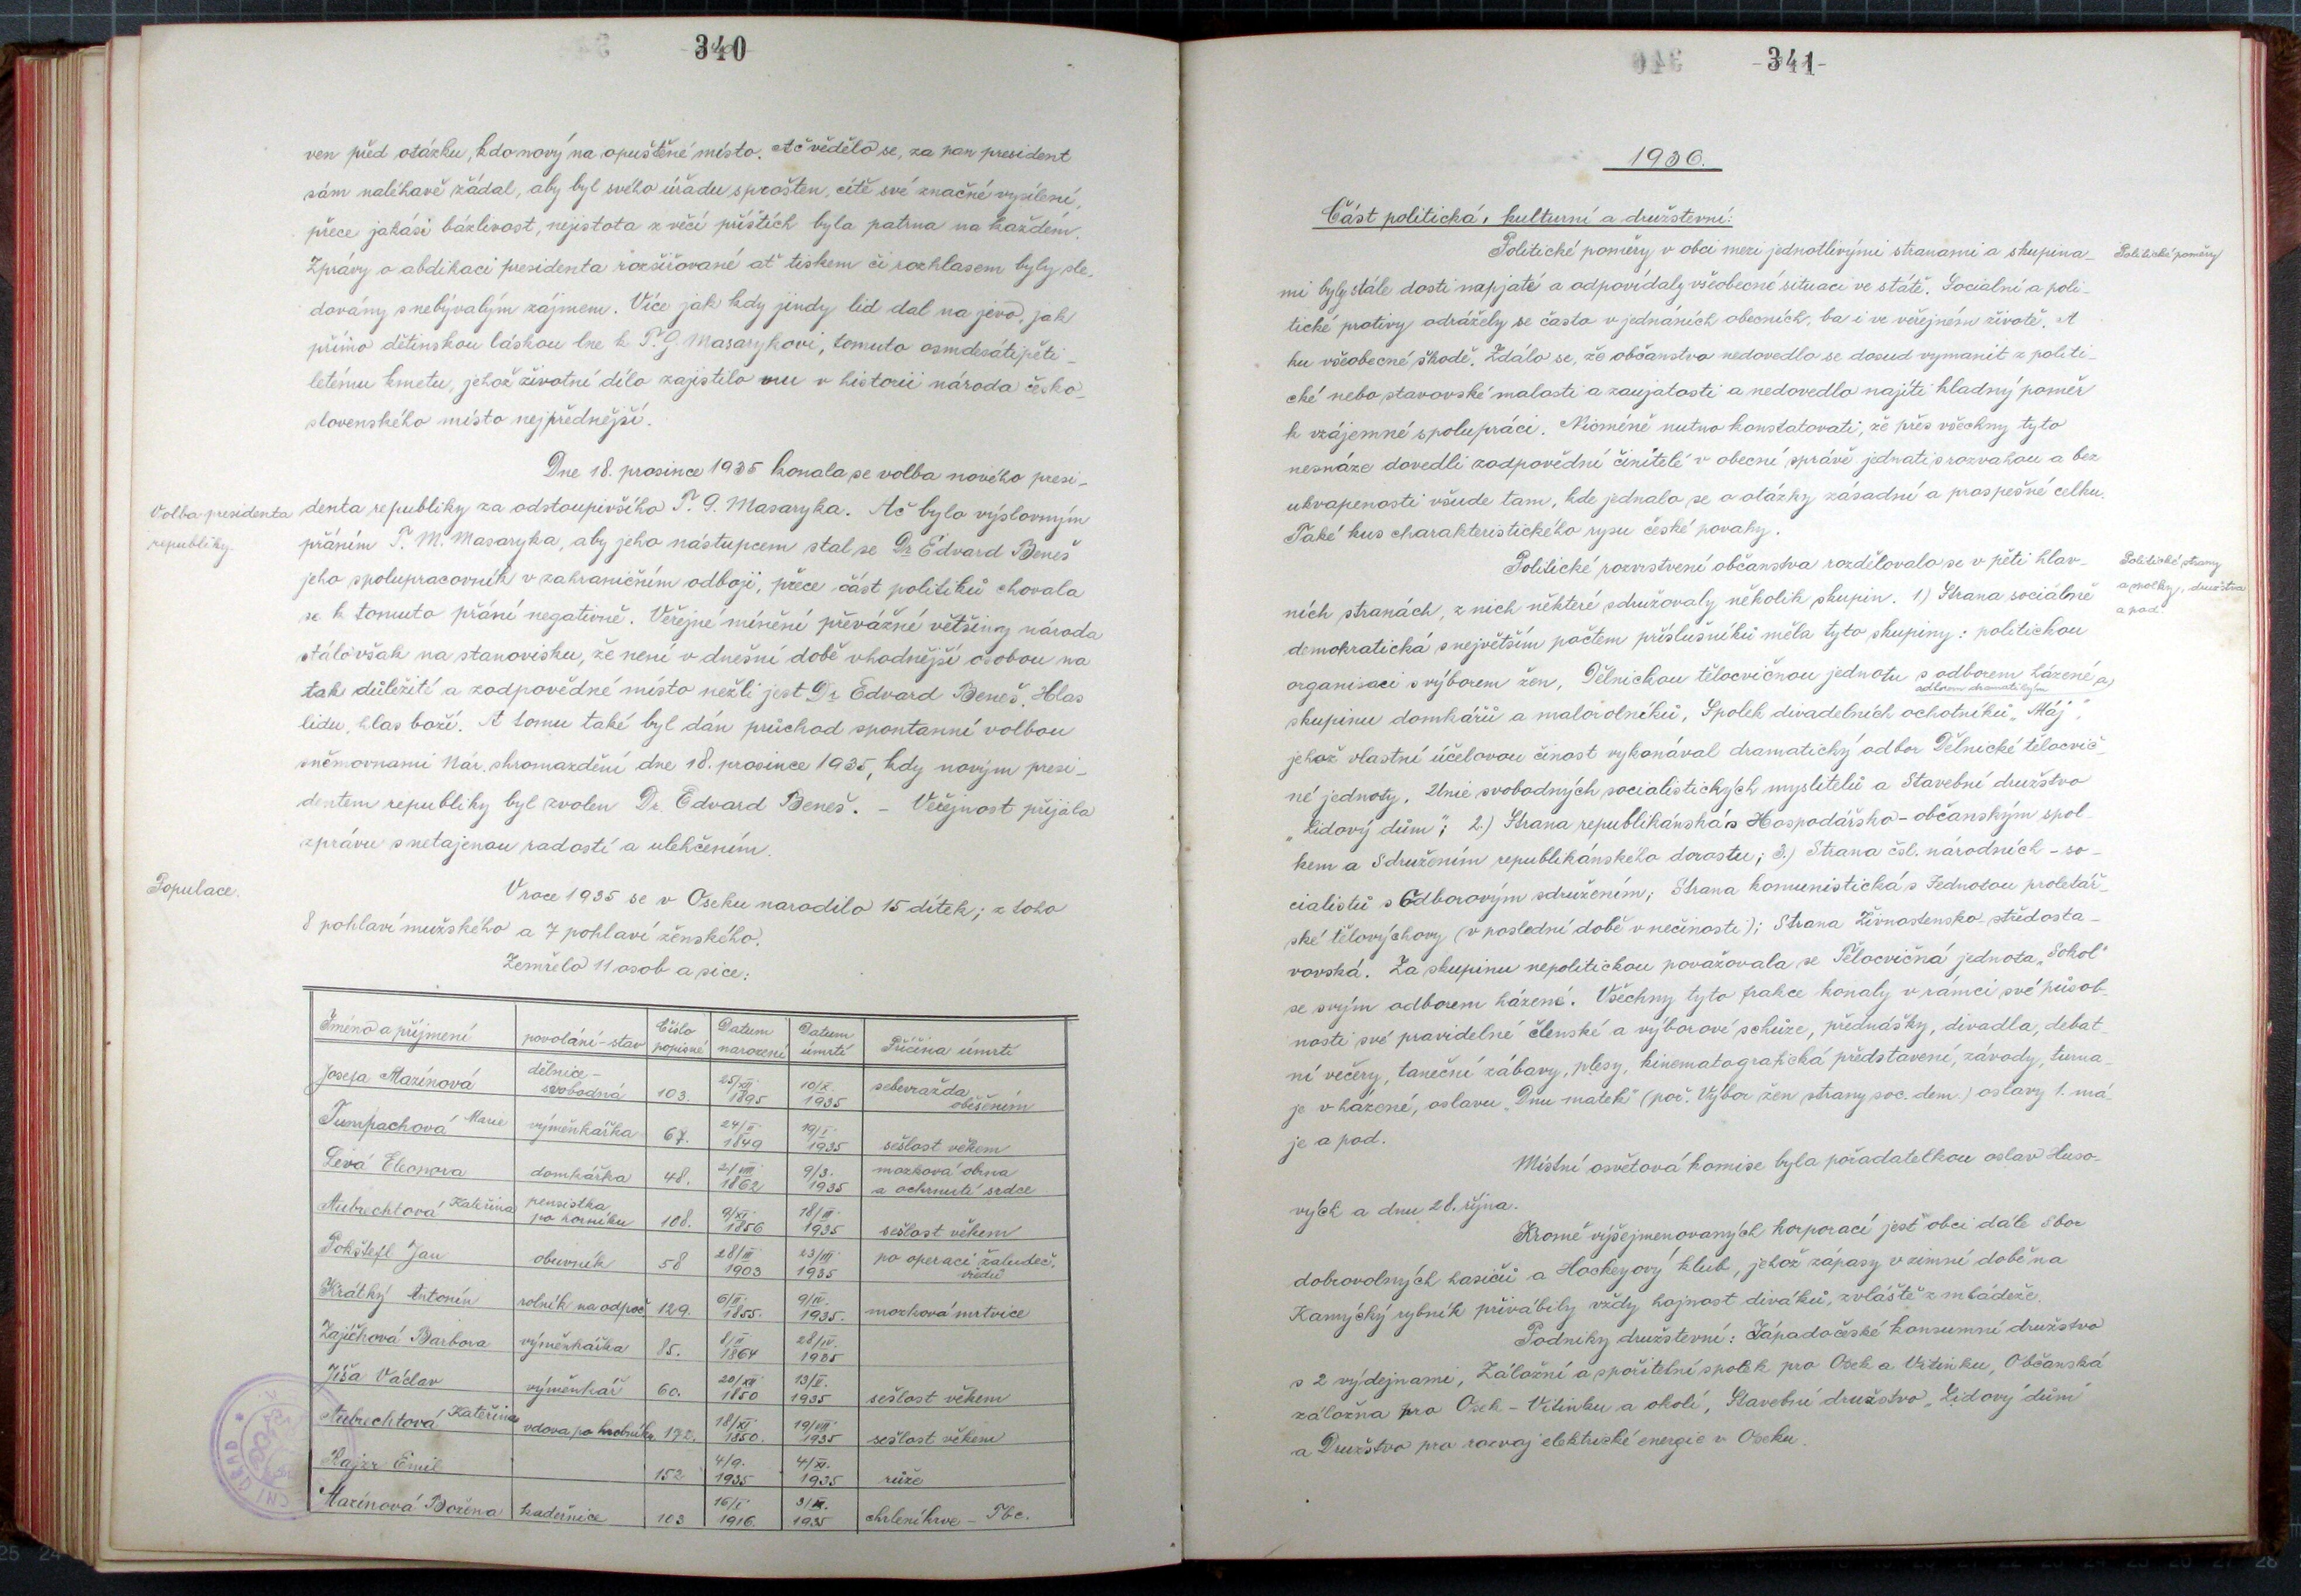 340
ven před otázku, kdo nový na opuštěné místo. Ač vědělo se, za pan president
sám naléhavě žádal, aby byl svého úřadu sproštěn, cítě své značné vysílení,
přece jakási bázlivost, nejistota z věcí příštích byla patrna na každém.
Zprávy o abdikaci presidenta rozšiřované ať tiskem či rozhlasem byly sle-
dovány s nebývalým zájmem. Více jak kdy jindy lid dal na jevo, jak
přímo dětinskou láskou lne k T. G. Masarykovi, tomuto osmdesátipěti-
letému kmetu, jehož životní dílo zajistilo mu v historii národa česko-
slovenského místo nejpřednější.
Dne 18. prosince 1935 konala se volba nového presi-
Volba presidenta republiky.
denta republiky za odstoupivšího T. G. Masaryka. Ač bylo výslovným
přáním T. M. Masaryka, aby jeho nástupcem stal se Dr Edvard Beneš
jeho spolupracovník v zahraničním odboji, přece část politiků chovala
se k tomuto přání negativně. Veřejné mínění převážné většiny národa
stálo však na stanovisku, že není v dnešní době vhodnější osobou na
tak důležité a zodpovědné místo nežli jest Dr Edvard Beneš. Hlas
lidu, hlas boží. A tomu také byl dán průchod spontanní volbou
sněmovnami Nár. shromáždění dne 18. prosince 1935, kdy novým presi-
dentem republiky byl zvolen Dr. Edvard Beneš. - Veřejnost přijala
zprávu s netajenou radostí a ulehčením.
Populace.
V roce 1935 se v Oseku narodilo 15 dítek; z toho
8 pohlaví mužského a 7 pohlaví ženského.
Zemřelo 11 osob a sice:
Jméno a příjmení povolání-stav Číslo popisné Datum narození Datum úmrtí Příčina úmrtí
Josefa Mazínová dělnice - svobodná 103. 25/XII. 1895 10/X. 1935 sebevražda oběšením
Tumpachová Marie výměnkářka 67. 24/II 1849 19/I. 1935 sešlost věkem
Levá Eleonora domkářka 48. 2/VIII. 1862 9/3. 1935 mozková obrna a ochrnutí srdce
Aubrechtová Kateřina pensistka po horníku 108. 9/XI. 1856 18/III. 1935 sešlost věkem
Pokštefl Jan obuvník 58 28/III. 1903 23/III. 1935 po operaci žaludeč. vředů
Krátký Antonín rolník na odpoč 129. 6/II. 1855. 9/IV. 1935. mozková mrtvice
Zajíčková Barbora výměnkářka 85. 8/II 1864 28/IV. 1935
Jíša Václav výměnkář 60. 20/XII 1850 13/V. 1935 sešlost věkem
Aubrechtová Kateřina vdova po hrobníku 172. 18/XI. 1850. 19/VIII 1935 sešlost věkem
Hajzr Emil 152 4/9. 1935 4/XI. 1935 růže
Mazínová Božena kadeřnice 103 16/I. 1916. 3/XI. 1935 chrlení krve - Tbc.
-341-
1936.
Část politická, kulturní a družstevní:
Politické poměry v obci mezi jednotlivými stranami a skupina-
Politické poměry
mi byly stále dosti napjaté a odpovídaly všeobecné situaci ve státě. Sociální a poli-
tické protivy odrážely se často v jednáních obecních, ba i ve veřejném životě. A
ku všeobecné škodě. Zdálo se, že občanstvo nedovedlo se dosud vymanit z politi-
cké nebo stavovské malosti a zaujatosti a nedovedlo najíti kladný poměr
k vzájemné spolupráci. Nicméně nutno konstatovati, že přes všechny tyto
nesnáze dovedli zodpovědní činitelé v obecní správě jednati s rozvahou a bez
ukvapenosti všude tam, kde jednalo se o otázky zásadní a prospěšné celku.
Také kus charakteristického rysu české povahy.
Politické rozvrstvení občanstva rozdělovalo se v pěti hlav-
Politické strany
a spolky, družstva
a pod.
ních stranách, z nich některé sdružovaly několik skupin. 1) Strana sociálně
demokratická s největším počtem příslušníků měla tyto skupiny: politickou
organisaci s výborem žen, Dělnickou tělocvičnou jednotu s odborem házené a)
odborem dramatickým
skupinu domkářů a malorolníků, Spolek divadelních ochotníků „Máj“,
jehož vlastní účelovou činost vykonával dramatický odbor Dělnické tělocvič-
né jednoty, Unie svobodných socialistických myslitelů a Stavební družstvo
„Lidový dům“; 2.) Strana republikánská s Hospodářsko-občanským spol-
kem a Sdružením republikánského dorostu; 3.) Strana čsl. národních - so-
cialistů s Odborovým sdružením; Strana komunistická s Jednotou proletář-
ské tělovýchovy (v poslední době v nečinosti); Strana Živnostensko-středosta-
vovská. Za skupinu nepolitickou považovala se Tělocvičná jednota „Sokol“
se svým odborem házené. Všechny tyto frakce konaly v rámci své působ-
nosti své pravidelné členské a výborové schůze, přednášky, divadla, debat-
ní večery, taneční zábavy, plesy, kinematografická představení, závody, turna-
je v házené, oslavu „Dnu matek“ (poř. Výbor žen strany soc. dem.) oslavy 1. má-
je a pod.
Místní osvětová komise byla pořadatelkou oslav Huso-
vých a dnu 28. října.
Kromě výšejmenovaných korporací jest obci dále Sbor
dobrovolných hasičů a Hockeyový klub, jehož zápasy v zimní době na
Kamýcký rybník přivábily vždy hojnost diváků, zvláště z mládeže.
Podniky družstevní: Západočeské konsumní družstvo
s 2 výdejnami, Záložní a spořitelní spolek pro Osek a Vitinku, Občanská
záložna pro Osek - Vitinku a okolí, Stavební družstvo „Lidový dům“
a Družstvo pro rozvoj elektrické energie v Oseku.